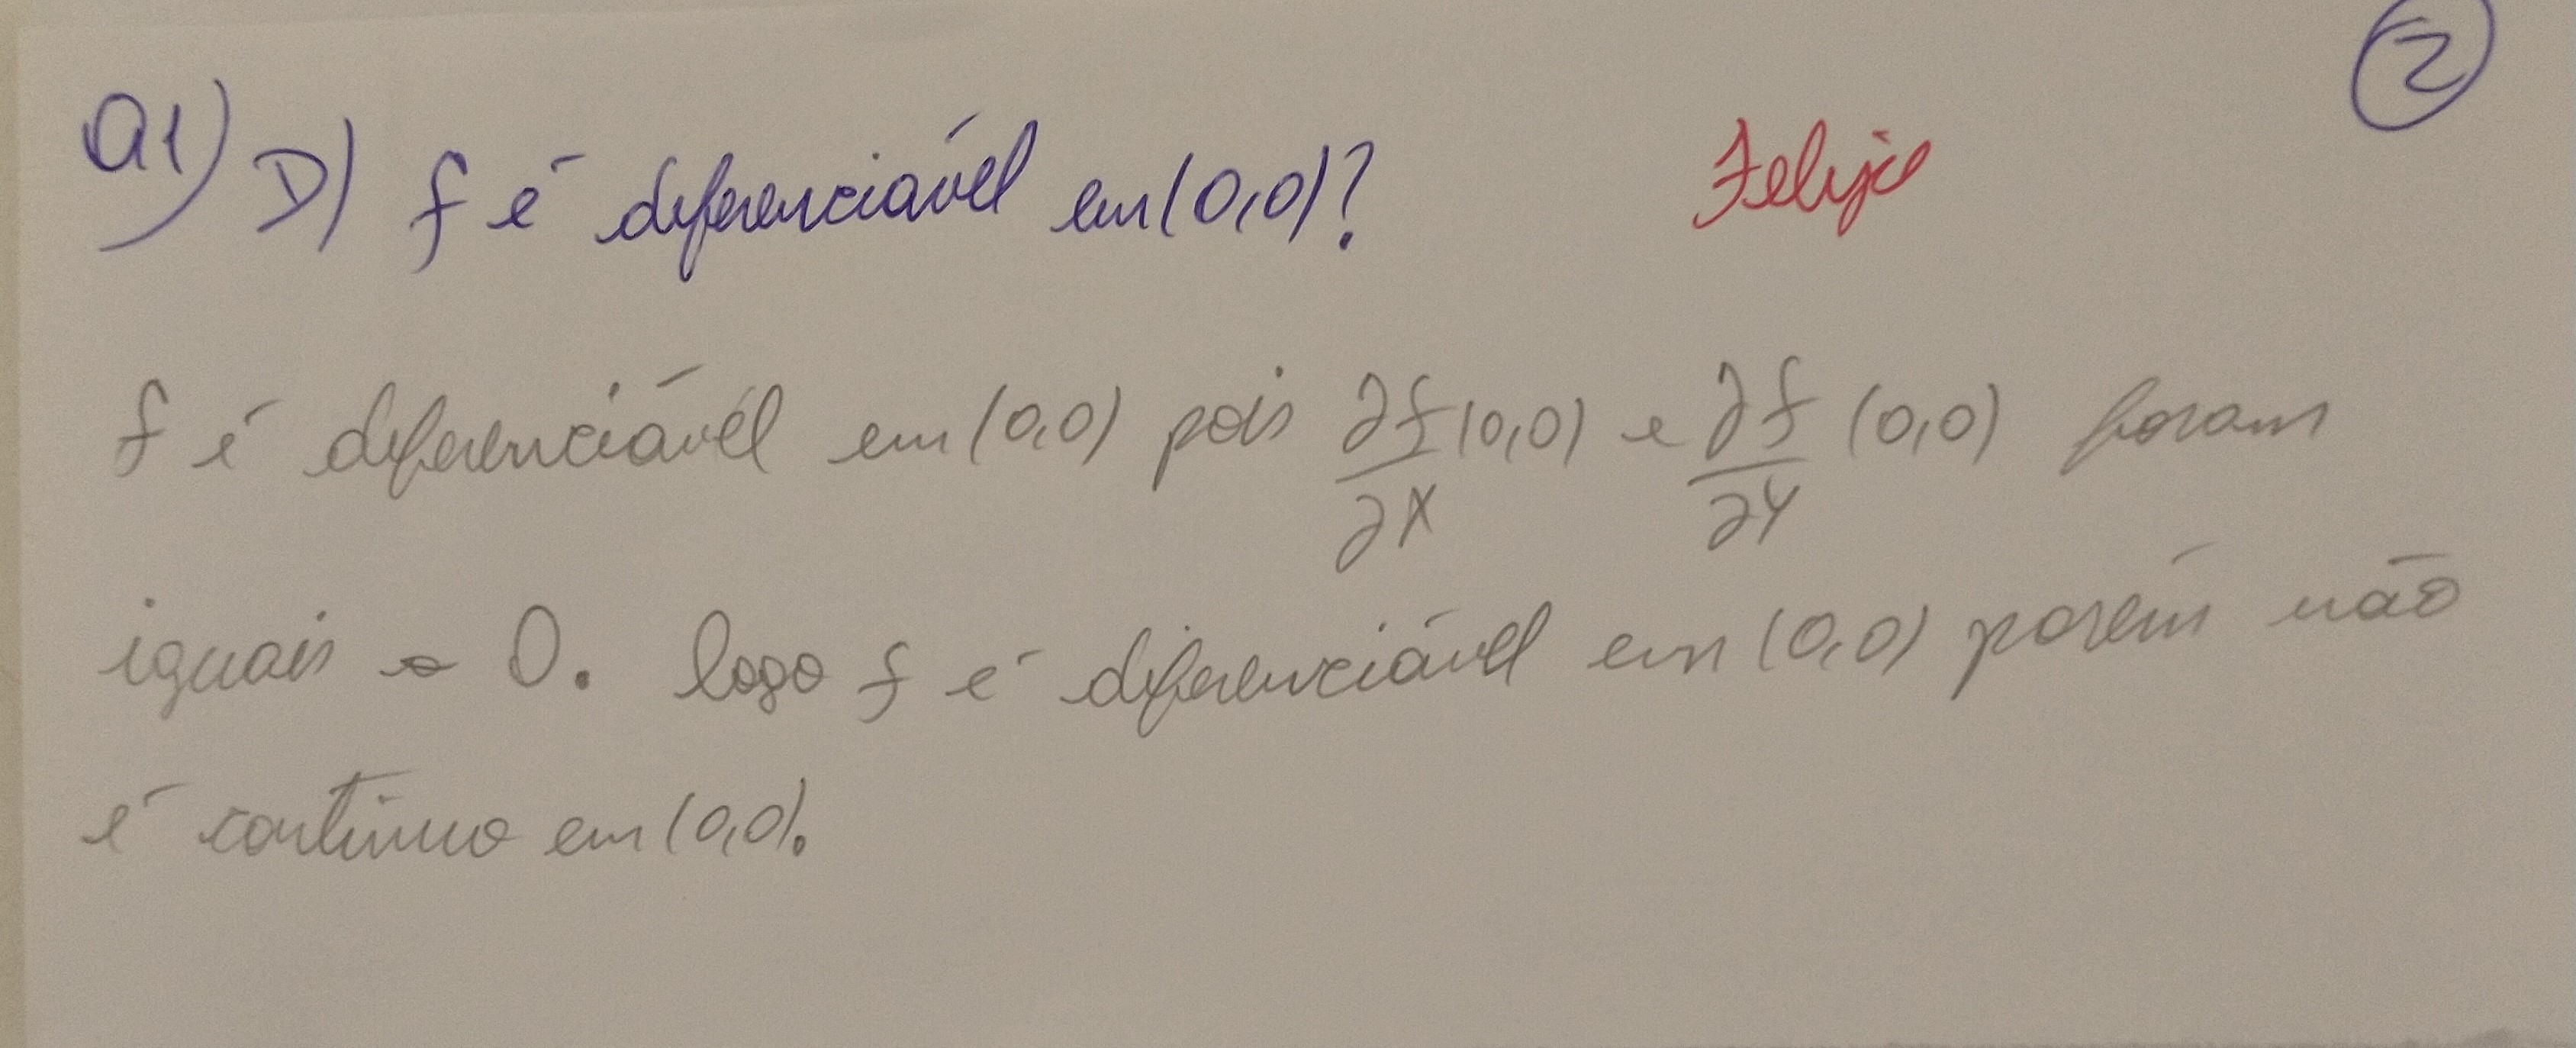 2
Q1) D) f é diferenciável em (0,0)? Felipe
f é diferenciável em (0,0) pois ∂f/∂x (0,0) e ∂f/∂y (0,0) foram
iguais a 0. logo f é diferenciável em (0,0) porém não
é contínuo em (0,0).